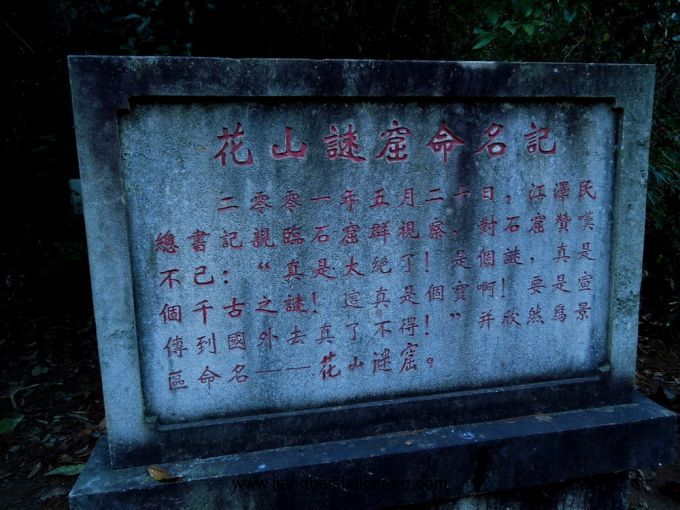 花山謎窟命名記
二零零一年五月二十日，江澤民
總書記親臨石窟群視察，對石窟贊嘆
不已：“真是太絕了！是個謎，真是
個千古之謎！這真是個寶啊！要宣
傳到國外去！真了不得！”并欣然爲景
區命名——花山謎窟。